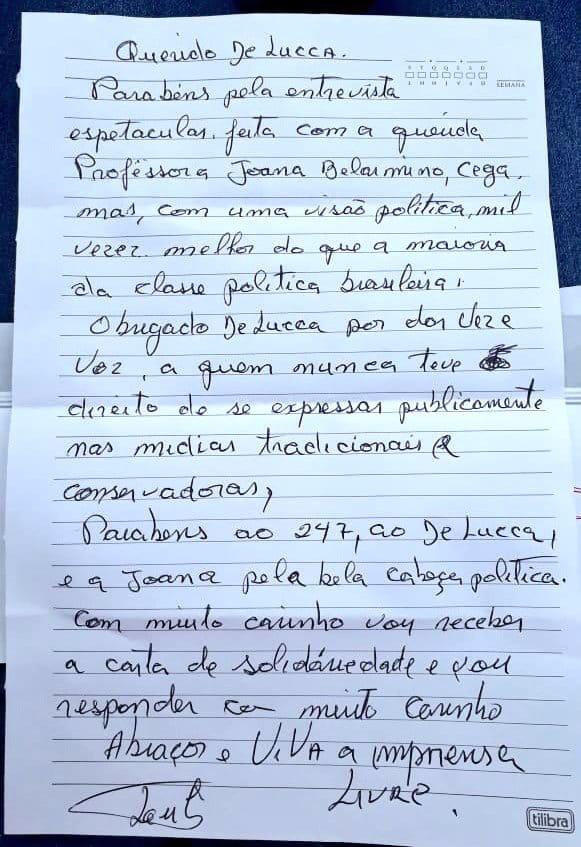 Querido De Lucca.
S T Q Q S S D
SEMANA
Parabéns pela entrevista
espetacular, feita com a querida
Proféssora Joana Belarmino, cega,
mas, com uma visão politica, mil
vezez melhor do que a maioria
da classe politica brasileira.
Obrigado De Lucca por dar Veze
Voz, a quem nunca teve
direito de se expressar publicamente
nas midias tradicionais e
conservadoras,
Parabens ao 247, ao De Lucca,
e a Joana pela bela cabeça politica.
Com muito carinho vou receber
a carta de solidáriedade e vou
responder com muito carinho
Abraços e ViVA a imprensa
LIVRE.
Lula
tilibra